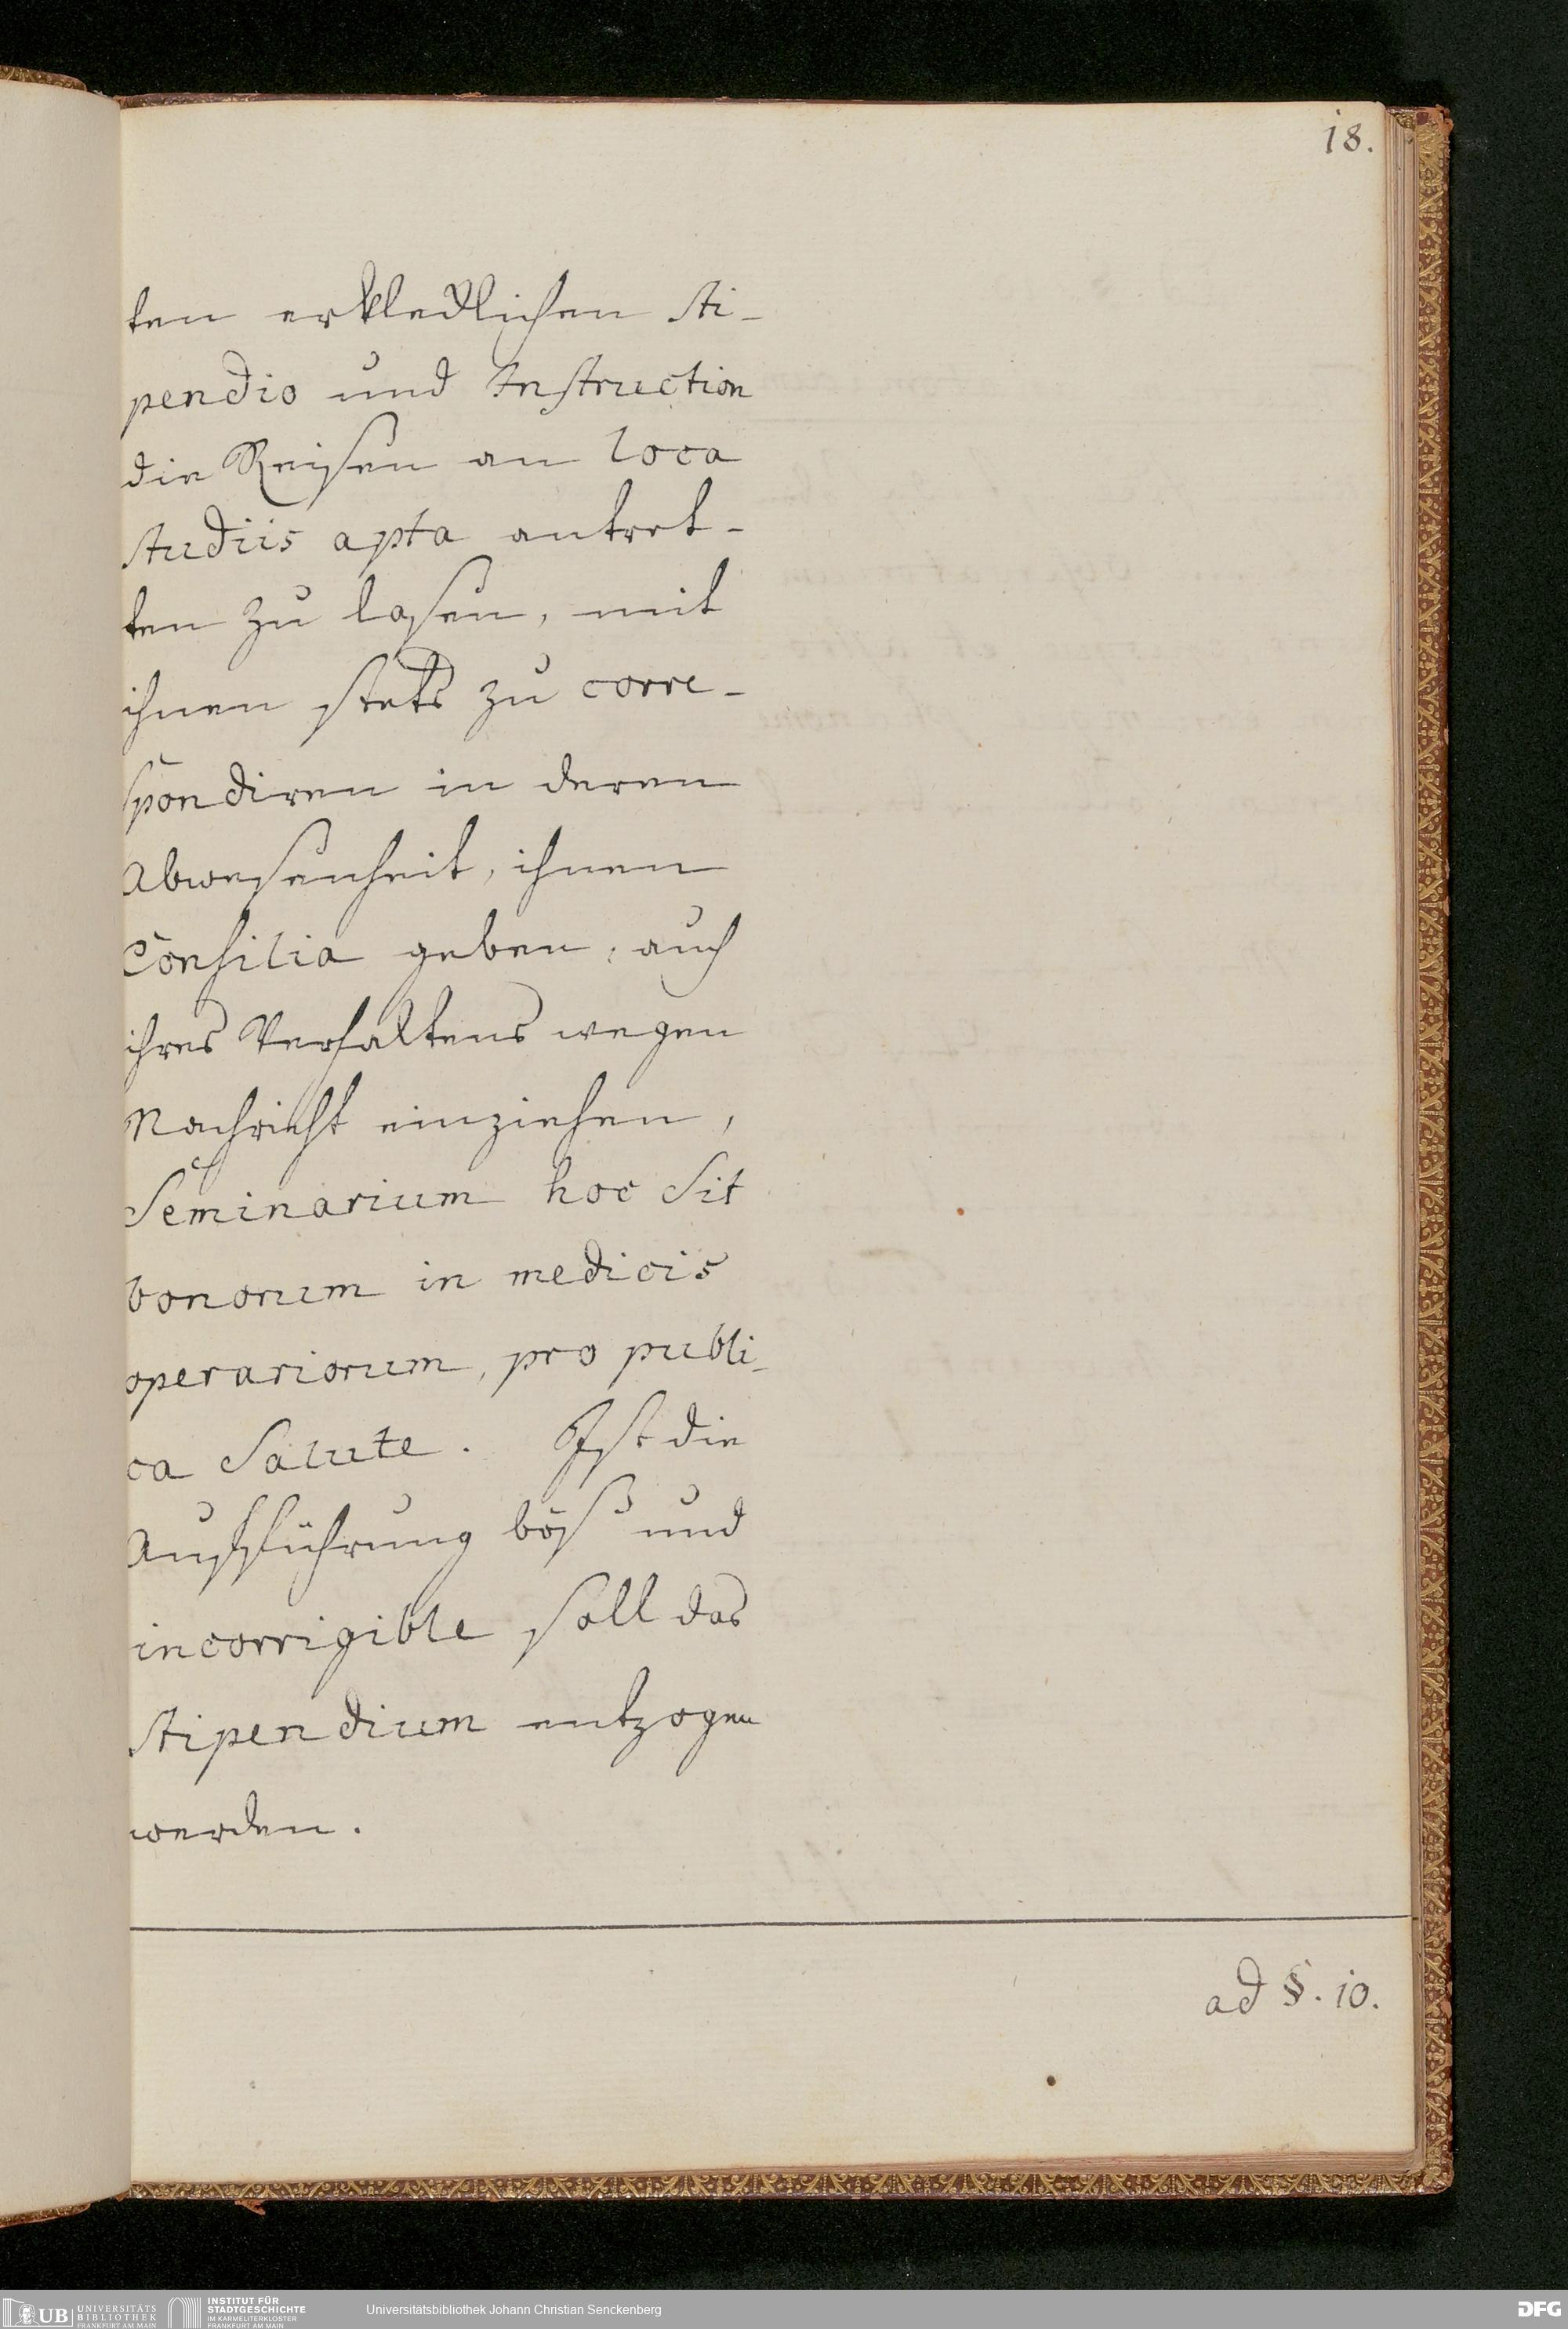 18.
ten erkledlichen Sti-
pendio und Instruction
die Reisen an loca
studiis apta antret-
ten zu lasen, mit
ihnen stets zu corre-
spondiren in deren
Abwesenheit, ihnen
Consilia geben, auch
ihres Verhaltens wegen
Nachricht einziehen,
Seminarium hoc sit
bonorum in medicis
operariorum, pro publi-
ca Salute. Ist die
Aufführung böß und
incorrigible soll das
Stipendium entzogen
werden.
ad §. 10.
UB UNIVERSITÄTS
BIBLIOTHEK
FRANKFURT AM MAIN
INSTITUT FÜR
STADTGESCHICHTE
IM KARMELITERKLOSTER
FRANKFURT AM MAIN
Universitätsbibliothek Johann Christian Senckenberg
DFG